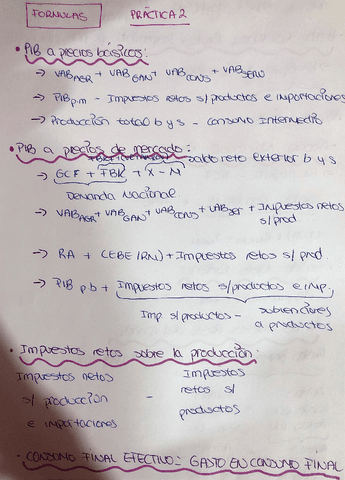 FORMULAS PRÁCTICA 2
• PIB a precios básicos:
→ VAB AGR + VAB GAN + VAB CONS + VAB SERV
→ PIB p.m - Impuestos netos s/productos e importaciones
→ Producción total b y s - consumo intermedio
• PIB a precios de mercado:
saldo neto exterior b y s
→ GCF + FBK + X - M
Demanda Nacional
→ VAB AGR + VAB GAN + VAB CONS + VAB SER + Impuestos netos
s/prod
→ RA + CEBE/RN) + Impuestos netos s/ prod
→ PIB p b + Impuestos netos s/productos e imp.
Imp. s/productos - subvenciones
a productos
• Impuestos netos sobre la producción:
Impuestos netos Impuestos
s/ producción - netos s/
e importaciones productos
- CONSUMO FINAL EFECTIVO = GASTO EN CONSUMO FINAL